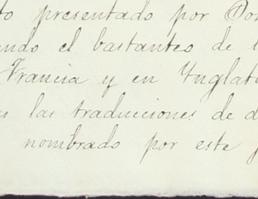 to presentado por Don
ando el bastanteo de l
Francia y en Ynglat
las traducciones de d
nombrado por este